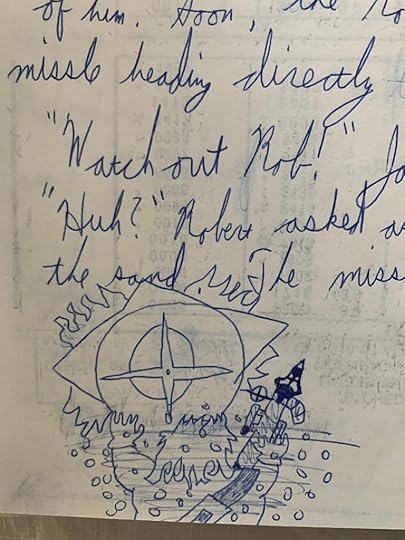 of him. Soon, the Ro
missle heading directly t
"Watch out Rob!" Ja
"Huh?" Robert asked as
the sand. The miss